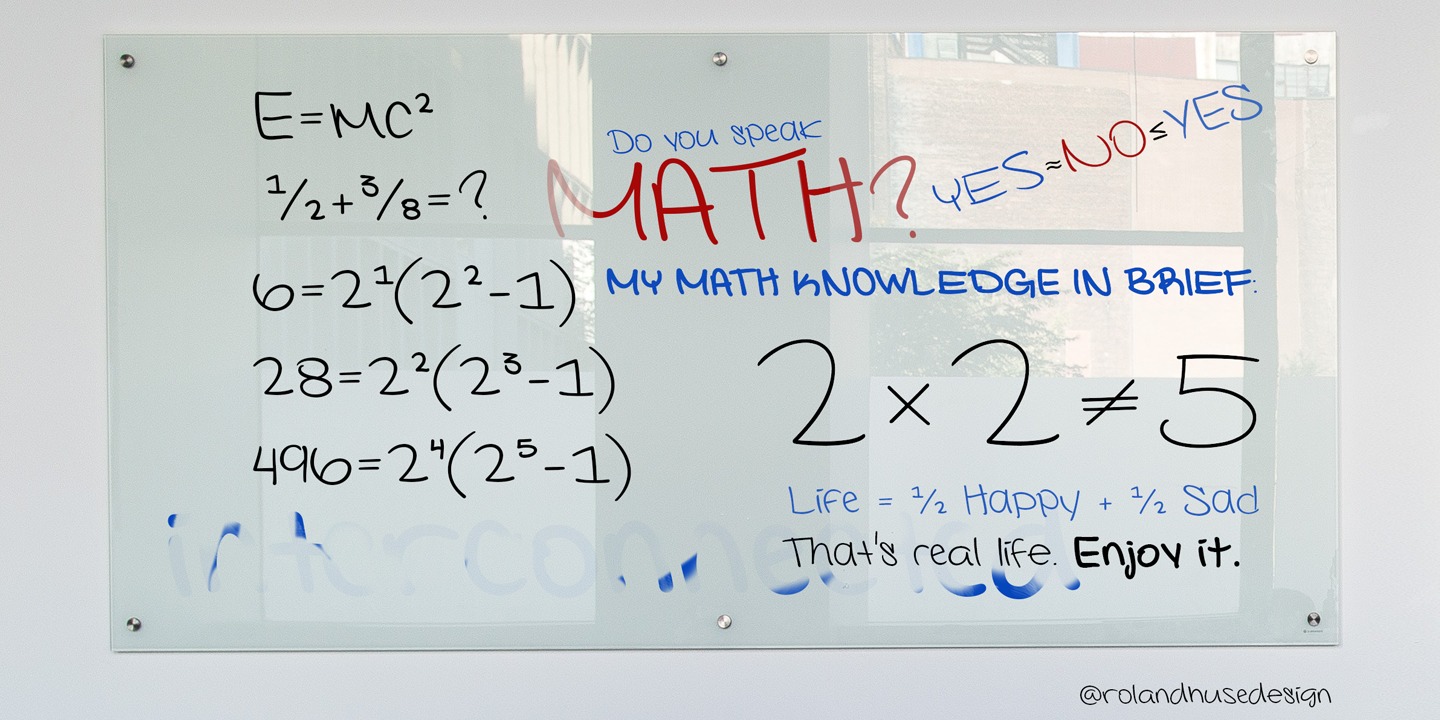 E=MC²
½+⅜=?
6=2¹(2²-1)
28=2²(2³-1)
496=2⁴(2⁵-1)
Do you speak
MATH?
YES≈NO≤YES
MY MATH KNOWLEDGE IN BRIEF:
2×2≠5
Life = ½ Happy + ½ Sad
That's real life. Enjoy it.
interconnected.
@rolandhusedesign